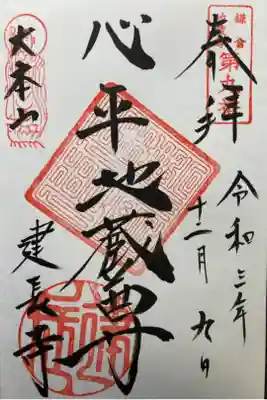 奉拝
鎌倉
第九番
令和三年
十二月九日
心平地蔵尊
大本山
建長寺